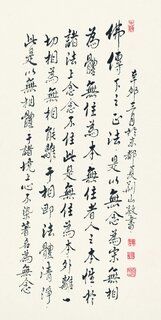 佛傳下之正法是以無念為宗無相
為體無住為本無住者人之本性於
諸法上念念不住此是無住為本外離一
切相為無相能離于相即法體清淨
此是以無相體于諸境心不染著名為無念
辛卯三月於京都
敬書